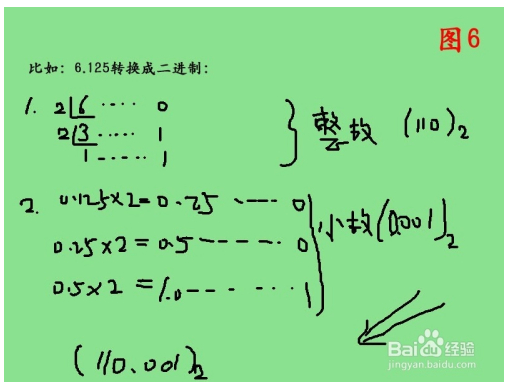 图6
比如：6.125转换成二进制：
1. 2 6 ···· 0
2 3 ····· 1
1 ····· 1
} 整数 (110)2
2. 0.125×2=0.25 ···· 0
0.25×2=0.5 ······ 0
0.5×2=1.0 ······ 1
小数(0.001)2
(110.001)2
Baidu经验
jingyan.baidu.com